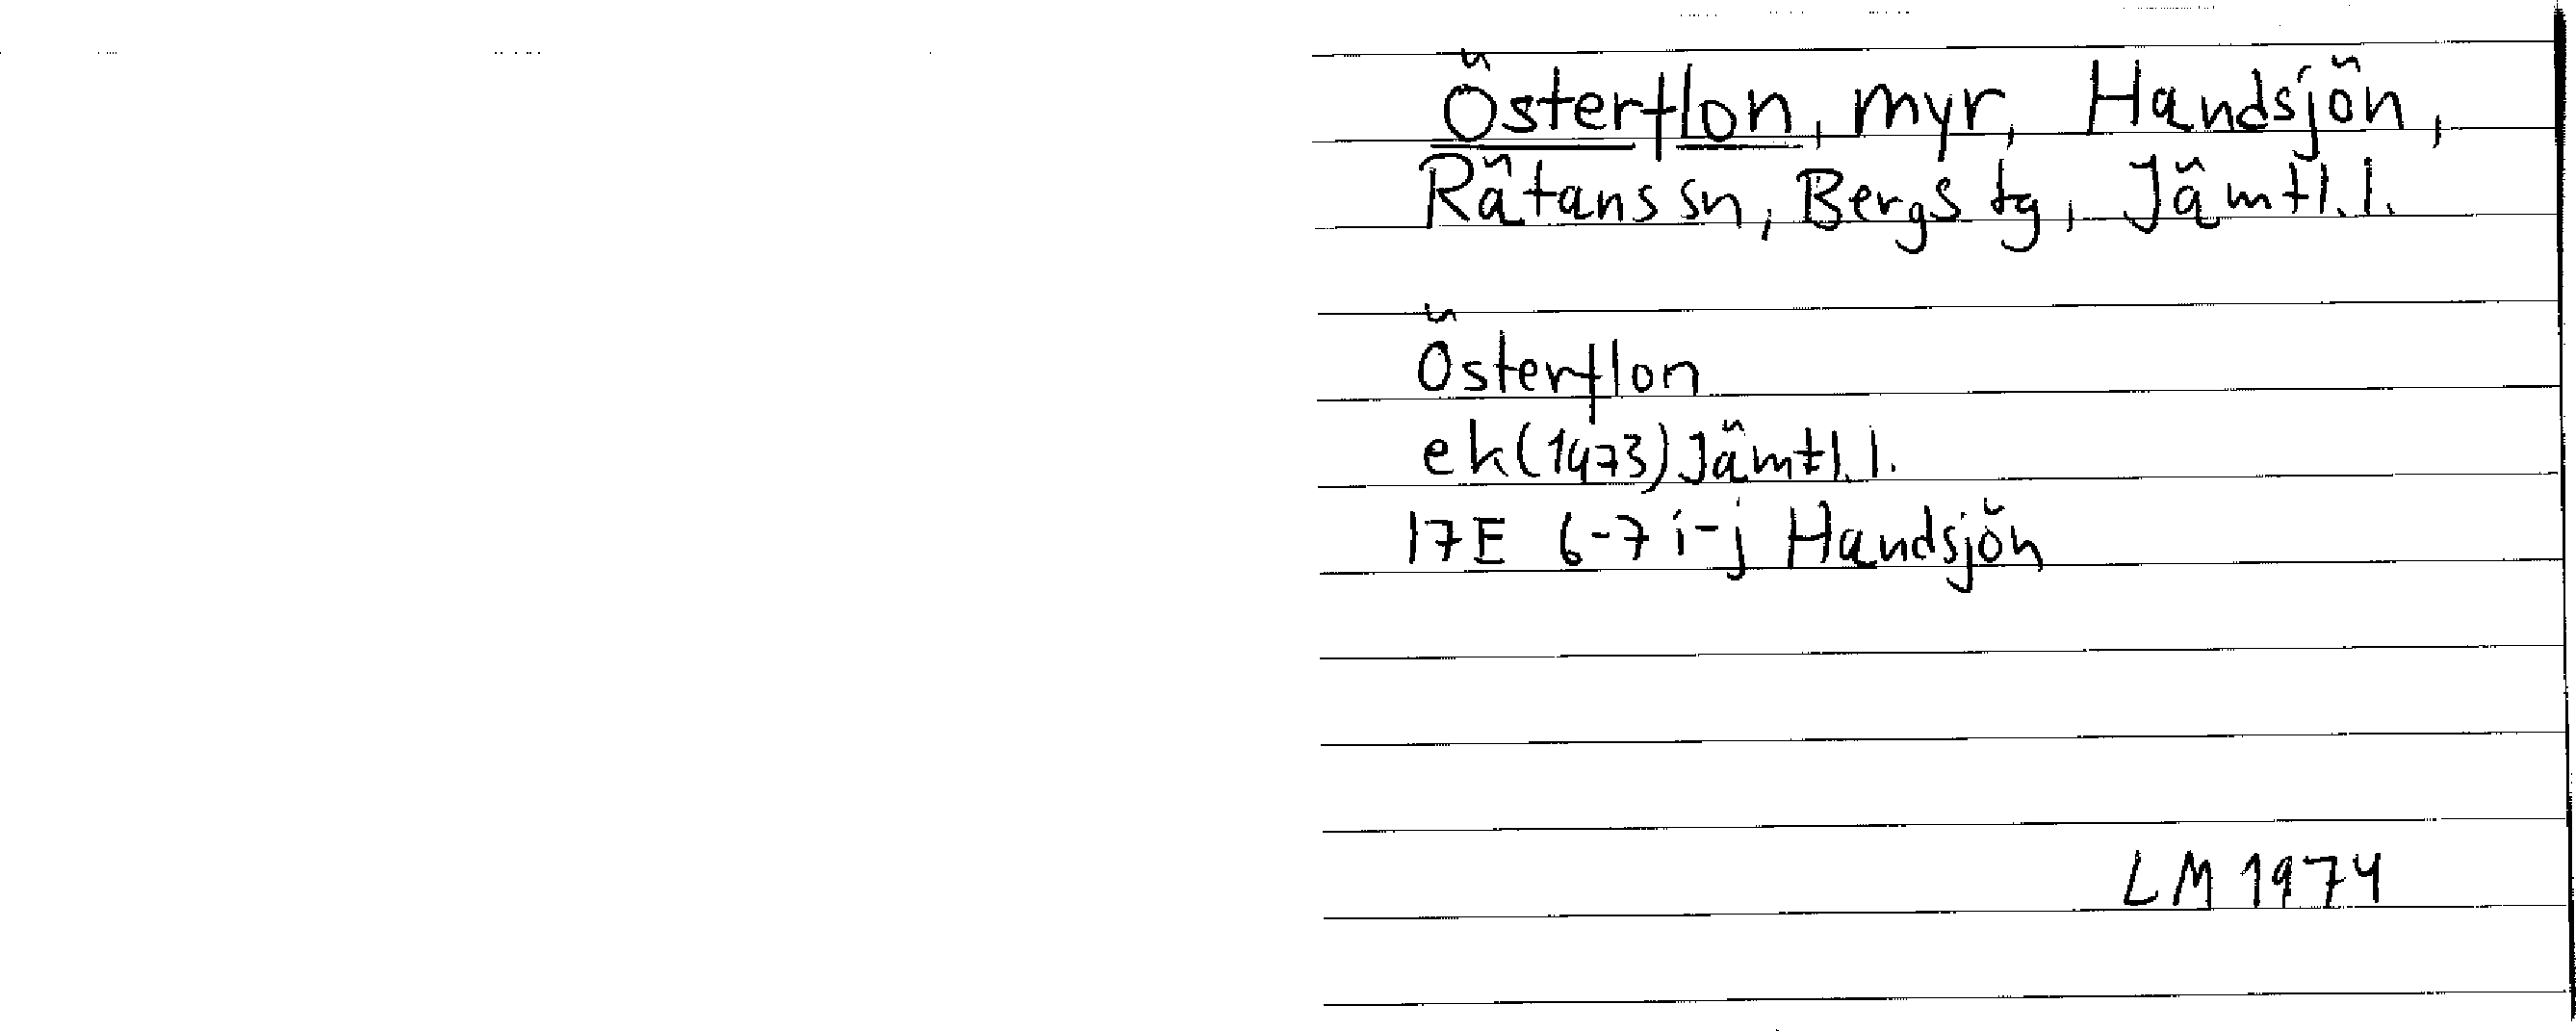 Österflon, myr, Handsjön,
Rätans sn, Bergs tg, Jämtl. l.
Österflon
ek (1973) Jämtl. l.
17E 6-7 i-j Handsjön
LM 1974